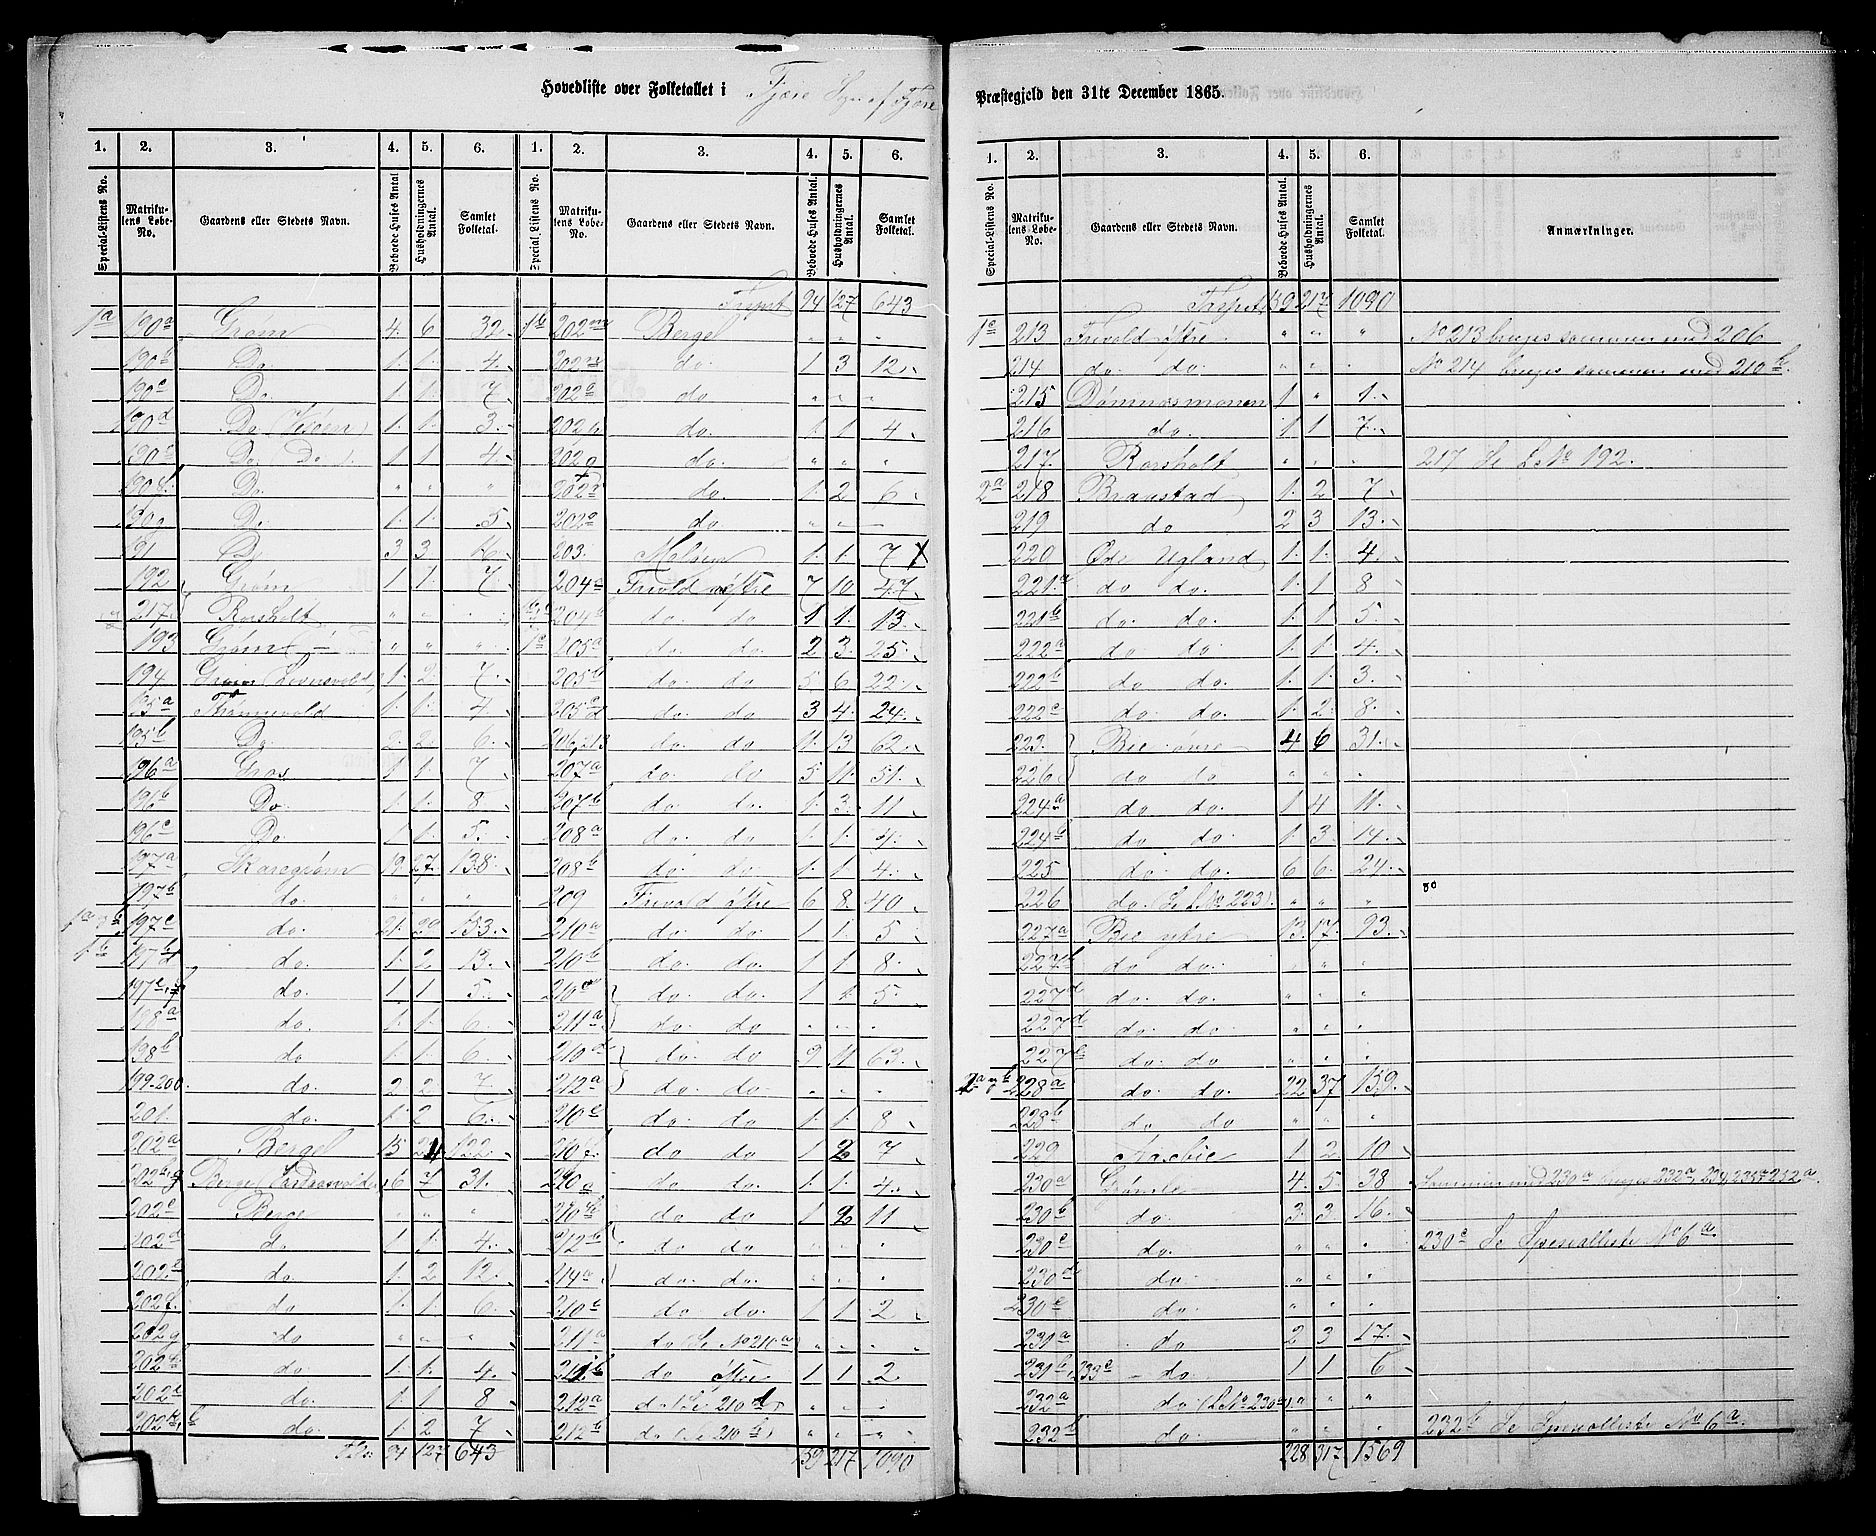 Hovedliste over Folketallet i Fjære Sogn af Fjære
Præstegjeld den 31te December 1865.
1. 2. 3. 4. 5. 6. 1. 2. 3. 4. 5. 6.
Special-Listens No. Matrikulens Løbe-No. Gaardens eller Stedets Navn. Beboede Huses Antal Husholdningernes Antal. Samlet Folketal. Special-Listens No. Matrikulens Løbe-No. Gaardens eller Stedets Navn. Beboede Huses Antal. Husholdningernes Antal. Samlet Folketal.
1a 190a Grøm 4 6 32
190b Do 1 1 4
190c Do 1 1 7
190d Do 1 1 3
190e Do (Do) 1 1 4
190f Do " " "
190g Do 1 1 5
191 Do 3 3
192 Grøm 1 1 7
217 Rorsholt " " "
193 Grøm " " "
194 Grøm 1 2 7
195a 1 1 4
195b Do 2 2 6
196a Gros 1 1 7
196b Do 1 1 8
196c Do 1 1 5
197a Skaregrøm 19 27 138
197b do " " "
197c do 21 29 153
1b 197d do 1 2 13
197e,f do 1 1 5
198a do 1 1 6
198b do 1 1 6
199-200 do 2 2 7
201 do 1 2 6
202a Berge 15 24 122
202b,g Berge 6 7 31
202c Berge " " "
202d do 1 1 4
202e do 1 2 12
202f do 1 1 6
202g do " " "
202h do 1 1 4
202i do 1 1 8
202k do 1 2 7
94 127 643
Transpt 94 127 643
1b 202m Berge " " "
202n do 1 3 12
202o do " " "
202p do 1 1 4
202q do " " "
do 1 2 6
do " " "
203 1 1 7
204a Frivold østre 7 10 47
204b do do 1 1 13
1c 205a do do 2 3 25
205b do do 5 6 22
205c d do do 3 4 24
206, 213 do do 11 13 62
207a do do 5 11 51
207b do do 1 3 11
208a do do 1 1 4
208b do do 1 1 4
209 Frivold østre 6 8 40
210a do do 1 1 5
210b do do 1 1 8
210c do do 1 1 5
211a do do " " "
210d do do 9 11 63
212a do do " " "
210e do do 1 1 8
210f do do 1 2 7
210g do do 1 1 4
210h do do 1 2 11
212b do do " " "
214a do do " " "
210i do do 1 1 2
211a do (Se No 210a) " " "
211b do 1 1 2
212a do (Se 210d) " " "
212b do (Se 210h) " " "
159 217 1090
1. 2. 3. 4. 5. 6.
Special-Listens No. Matrikulens Løbe-No. Gaardens eller Stedets Navn. Beboede Huses Antal. Husholdningernes Antal. Samlet Folketal. Anmærkninger.
Transpt 159 217 1090
1c 213 Frivold østre " " " No 213 bruges sammen med 206
214 do do " " " No 214 bruges sammen med 210h.
215 Dømmesmoen 1 " 1
216 do 1 1 7
217 Rorsholt " " " 217 Se L No 192.
2a 218 Braastad 1 2 7
219 do 2 3 13
220 Øde Ugland 1 1 4
221a do do 1 1 8
221b do do 1 1 5
222a do do 1 1 4
222b do do 1 1 3
222c do do 1 2 8
223 Bie øvre 4 6 31
226 do do " " "
224a do do 1 4 11
224b do do 1 3 14
225 do do 6 6 24
226 do (Se L No 223) " " "
227a Bie ytre 13 17 93
227b do do " " "
227c do do " " "
227d do do " " "
227e do do " " "
228a do do 22 37 159
228b do do " " "
229 Aasbie 1 2 10
230a Grømle 4 5 38 Sammen med 230a bruges 232a, 234, 235 & 252a.
230b do 3 3 16
230c do " " " 230c Se Specialliste No 6a.
230d do " " "
230e do " " "
231a do 2 3 17
231b 233c do 1 1 6
232a do (L No 230a) " " "
232b do " " " 232b Se Specialliste No 6a.
228 317 1569